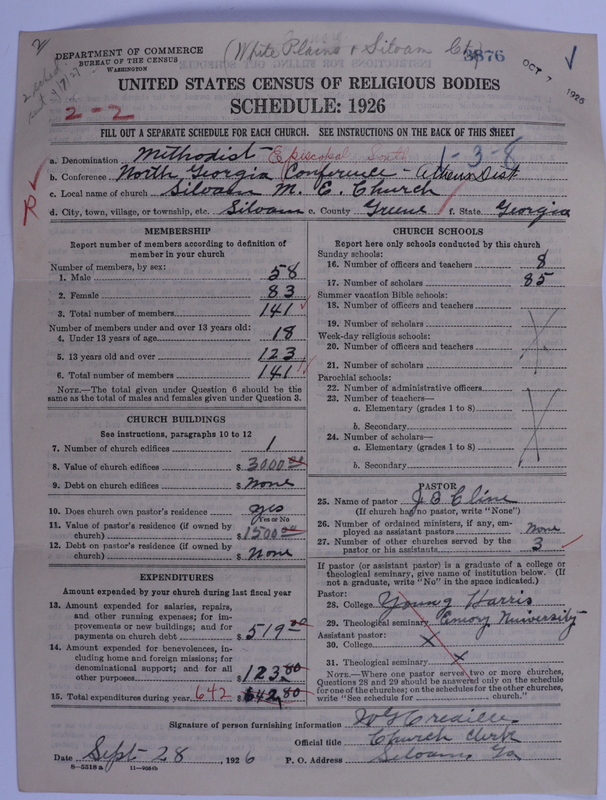 (White Plains & Siloam Ch)
DEPARTMENT OF COMMERCE
BUREAU OF THE CENSUS
WASHINGTON
3876
OCT 7 1926
UNITED STATES CENSUS OF RELIGIOUS BODIES
SCHEDULE: 1926
2-2
FILL OUT A SEPARATE SCHEDULE FOR EACH CHURCH. SEE INSTRUCTIONS ON THE BACK OF THIS SHEET
1-3-8
a. Denomination Methodist Episcopal South
b. Conference North Georgia Conference - Athens Dist.
c. Local name of church Siloam M. E. Church
d. City, town, village, or township, etc. Siloam e. County Greene f. State Georgia
R
MEMBERSHIP
Report number of members according to definition of
member in your church
Number of members, by sex:
1. Male 58
2. Female 83
3. Total number of members 141
Number of members under and over 13 years old:
4. Under 13 years of age 18
5. 13 years old and over 123
6. Total number of members 141
NOTE.—The total given under Question 6 should be the
same as the total of males and females given under Question 3.
CHURCH BUILDINGS
See instructions, paragraphs 10 to 12
7. Number of church edifices 1
8. Value of church edifices $ 3000 00
9. Debt on church edifices $ None
10. Does church own pastor's residence yes
Yes or No
11. Value of pastor's residence (if owned by
church) $ 1500 00
12. Debt on pastor's residence (if owned by
church) $ None
EXPENDITURES
Amount expended by your church during last fiscal year
13. Amount expended for salaries, repairs,
and other running expenses; for im-
provements or new buildings; and for
payments on church debt $ 519 00
14. Amount expended for benevolences, in-
cluding home and foreign missions; for
denominational support; and for all
other purposes $ 123 80
15. Total expenditures during year 642 $ 642 80
CHURCH SCHOOLS
Report here only schools conducted by this church
Sunday schools:
16. Number of officers and teachers 8
17. Number of scholars 85
Summer vacation Bible schools:
18. Number of officers and teachers
19. Number of scholars
Week-day religious schools:
20. Number of officers and teachers
21. Number of scholars
Parochial schools:
22. Number of administrative officers
23. Number of teachers—
a. Elementary (grades 1 to 8)
b. Secondary
24. Number of scholars—
a. Elementary (grades 1 to 8)
b. Secondary
PASTOR
25. Name of pastor J B Cline
(If church has no pastor, write "None")
26. Number of ordained ministers, if any, em-
ployed as assistant pastors None
27. Number of other churches served by the
pastor or his assistants 3
If pastor (or assistant pastor) is a graduate of a college or
theological seminary, give name of institution below. (If
not a graduate, write "No" in the space indicated.)
Pastor:
28. College Young Harris
29. Theological seminary Emory University
Assistant pastor:
30. College x
31. Theological seminary x
NOTE.—Where one pastor serves two or more churches,
Questions 28 and 29 should be answered only on the schedule
for one of the churches; on the schedules for the other churches,
write "See schedule for church."
Signature of person furnishing information
Official title Church Clerk
Date Sept-28, 1926 P. O. Address Siloam, Ga
8-5318a 11-9034b